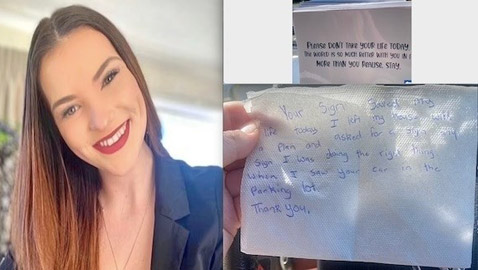 Please don't take your life today.
The world is so much better with you in i
more than you realise. Stay.
Your Sign Saved my
life today I left my house with
a plan and asked for a sign any
sign I was doing the right thing
When I saw your car in the
Parking lot.
Thank you,